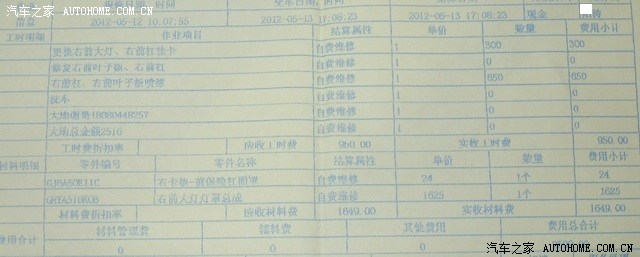 汽车之家 AUTOHOME.COM.CN
2012-05-12 10:07:55 2012-05-13 17:08:23 2012-05-13 17:08:23 现金
工时明细 作业项目 结算属性 单价 数量 费用小计
更换右前大灯、右前杠 卡 自费维修 1 300 300
修复右前叶子板、右前杠 自费维修 1 0 0
右前杠、右前叶子板喷漆 自费维修 1 650 650
自费维修 1 0 0
大地 18080448257 自费维修 1 0 0
大地总金额2516 自费维修 1 0 0
工时费折扣率 应收工时费 950.00 实收工时费 950.00
材料明细 零件编号 零件名称 结算属性 单价 数量 费用小计
右卡 -前保险杠 自费维修 24 1个 24
右前大灯灯罩总成 自费维修 1625 1个 1625
材料费折扣率 应收材料费 1649.00 实收材料费 1649.00
费用合计 材料管理费 辅料费 其他费用 费用总合计
0 0 0
汽车之家 AUTOHOME.COM.CN